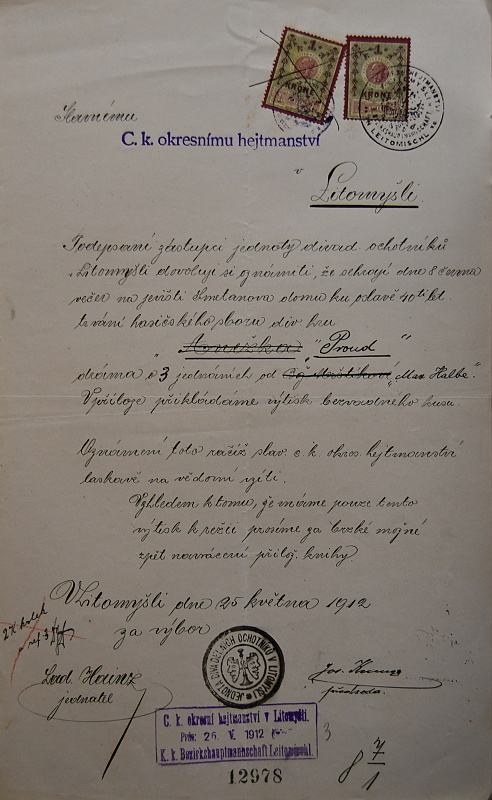 1
KRONE
1
KRONE
LEITOMISCHL
Slavnému
C. k. okresnímu hejtmanství
v
Litomyšli.
Podepsaní zástupci jednoty divad. ochotníků
v Litomyšli dovolují si oznámiti, že sehrají dne 8 června
večer na jevišti Smetanova domu ku oslavě 40ti let.
trvání hasičského sboru div. hru
„Anežka" „Proud"
dráma o 3 jednáních od Max Halbe".
V příloze přikládáme výtisk bezvadného kusu.
Oznámení toto račiž slav. c. k. okres. hejtmanství
laskavě na vědomí vzíti.
Vzhledem k tomu, že máme pouze tento
výtisk k režii prosíme za brzké možné
zpět navrácení přilož. knihy.
V Litomyšli dne 25 května 1912
za výbor
Lad. Hainz
jednatel
JEDNOTA DIVADELNÍCH OCHOTNÍKŮ V LITOMYŠLI
Jos.
předseda.
C. k. okresní hejtmanství v Litomyšli.
26. V. 1912
K. k. Bezirkshauptmannschaft Leitomischl.
3
12978
8 7/1